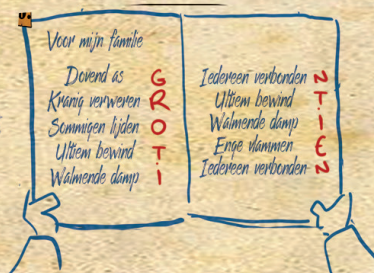 Voor mijn familie
Dovend as G
Kranig verweren R
Sommigen lijden O
Ultiem bewind T
Walmende damp I
Iedereen verbonden N
Ultiem bewind T
Walmende damp I
Enge vlammen E
Iedereen verbonden N